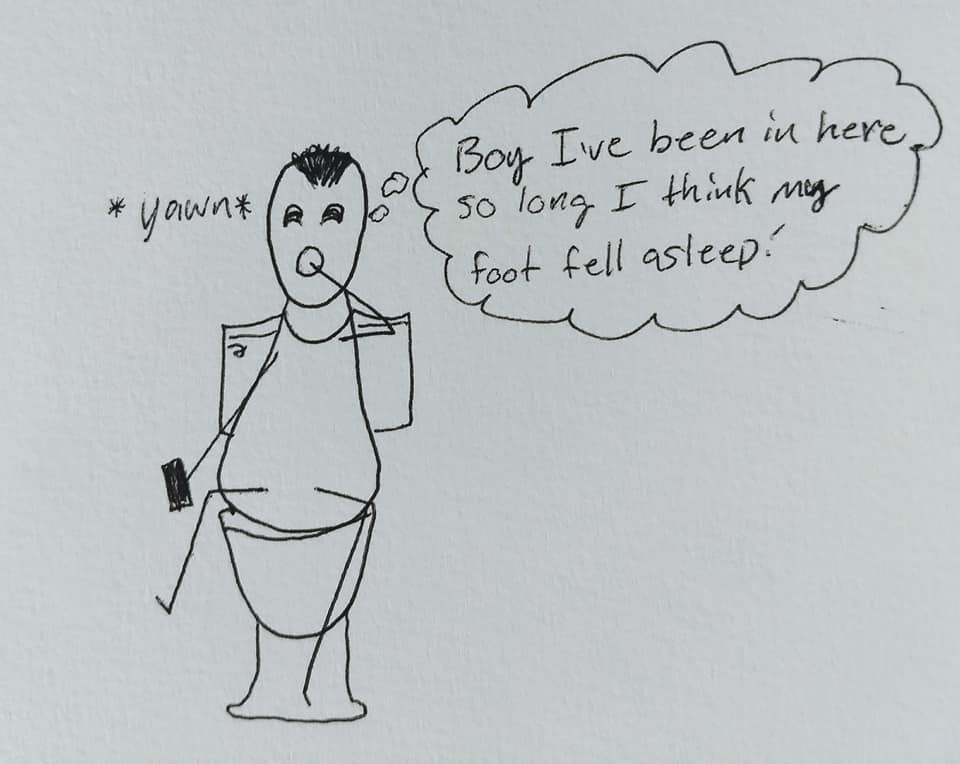 *yawn*
Boy I've been in here
so long I think my
foot fell asleep!